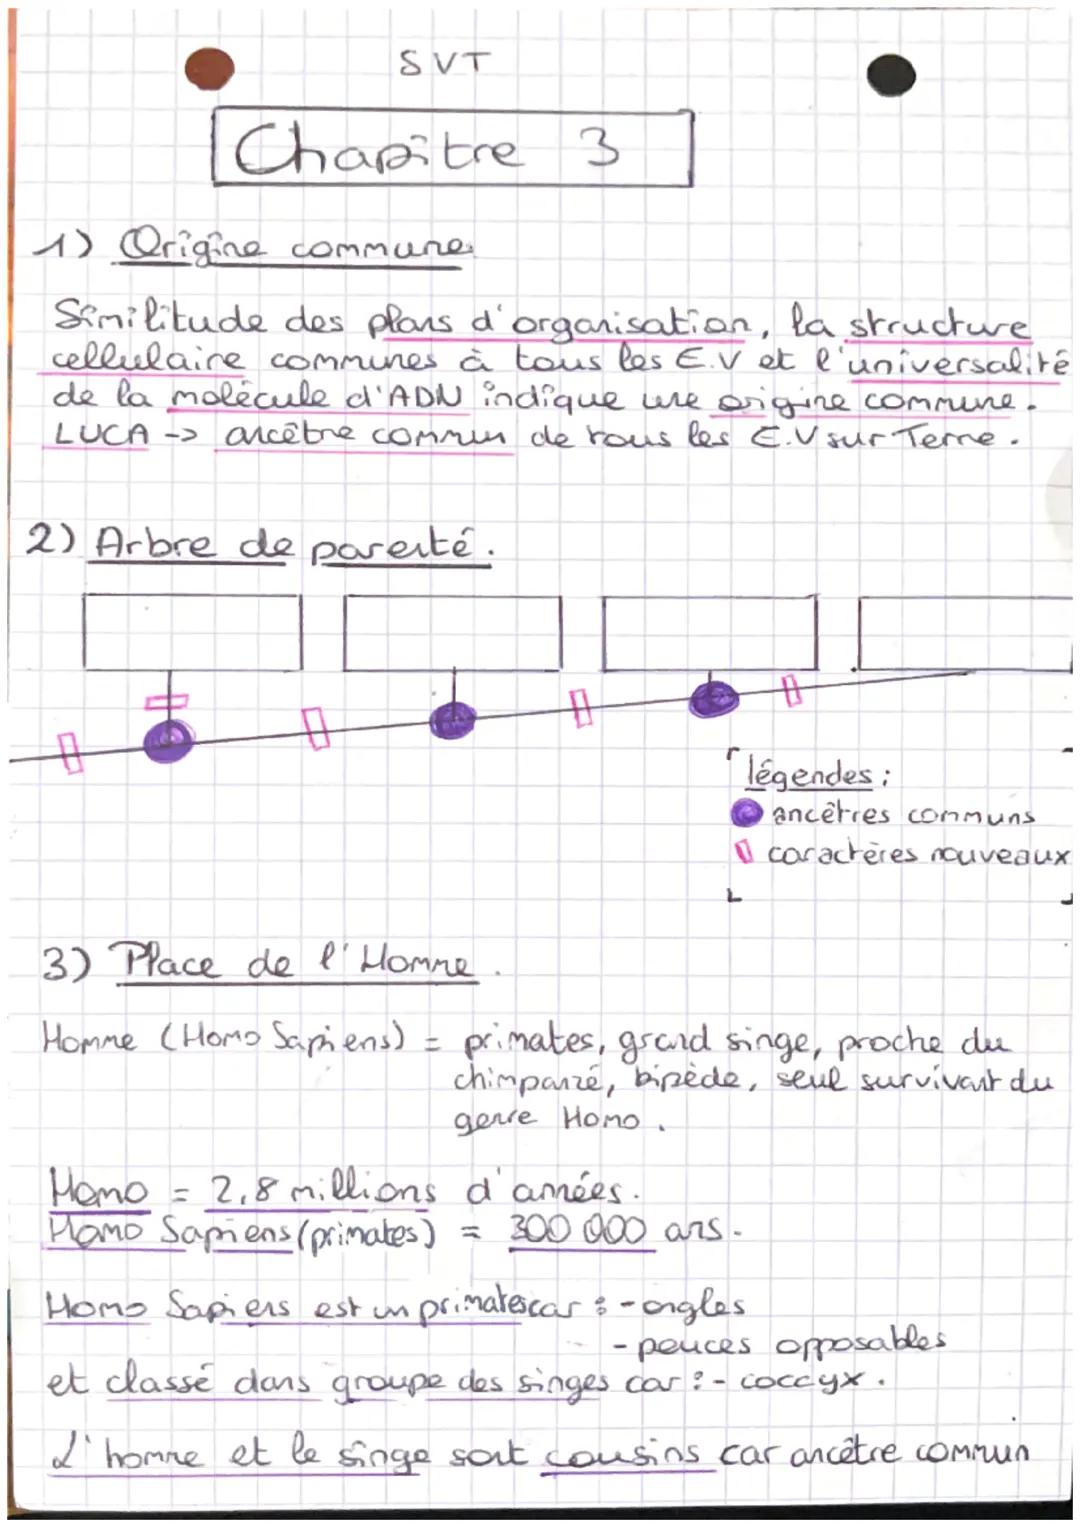 SVT
Chapitre 3
1) Origine commune.
Similitude des plans d'organisation, la structure
cellulaire communes à tous les E.V et l'universalité
de la molécule d'ADN indique une origine commune.
LUCA -> ancêtre commun de tous les E.V sur Terre.
2) Arbre de parenté.
légendes :
ancêtres communs
caractères nouveaux
3) Place de l'Homme.
Homme (Homo Sapiens) = primates, grand singe, proche du
chimpanzé, bipède, seul survivant du
genre Homo.
Homo = 2,8 millions d'années.
Homo Sapiens (primates) = 300 000 ans.
Homo Sapiens est un primates car : - ongles
- pouces opposables
et classé dans groupe des singes car : - coccyx.
L'homme et le singe sont cousins car ancêtre commun